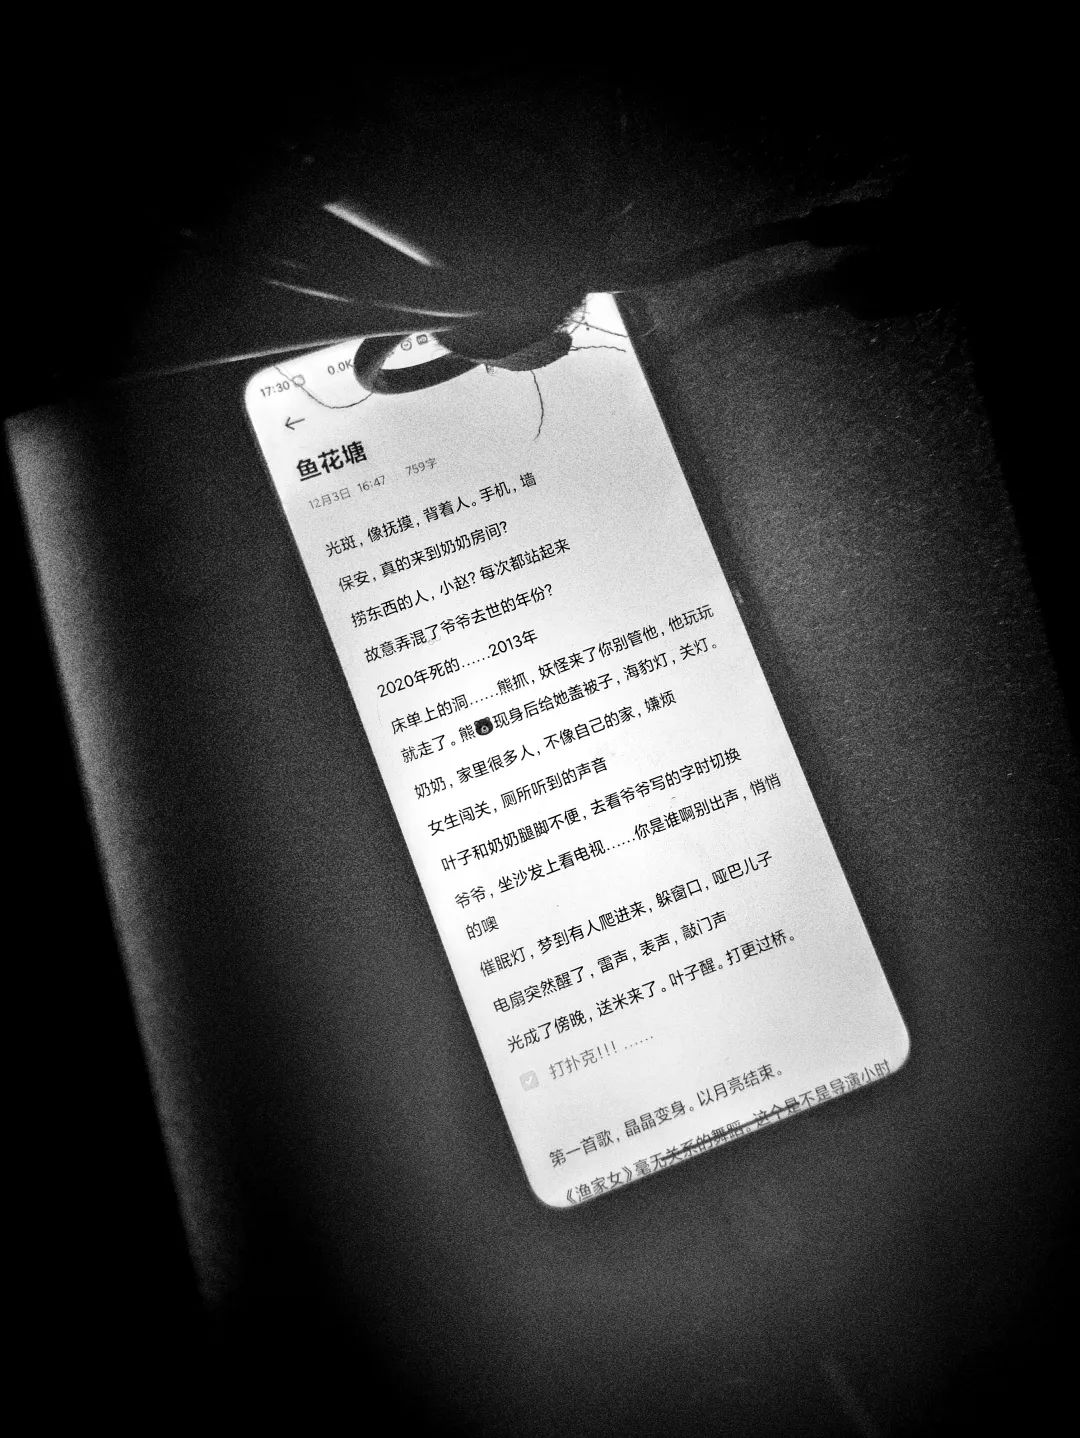 17:30
0.0K
鱼花塘
12月3日 16:47 759字
光斑，像抚摸，背着人。手机，墙
保安，真的来到奶奶房间？
捞东西的人，小赵？每次都站起来
故意弄混了爷爷去世的年份？
2020年死的……2013年
床单上的洞……熊抓，妖怪来了你别管他，他玩玩
就走了。熊🐻现身后给她盖被子，海豹灯，关灯。
奶奶，家里很多人，不像自己的家，嫌烦
女生闯关，厕所听到的声音
叶子和奶奶腿脚不便，去看爷爷写的字时切换
爷爷，坐沙发上看电视……你是谁啊别出声，悄悄
的噢
催眠灯，梦到有人爬进来，躲窗口，哑巴儿子
电扇突然醒了，雷声，表声，敲门声
光成了傍晚，送米来了。叶子醒。打更过桥。
打扑克！！！……
第一首歌，晶晶变身。以月亮结束。
《渔家女》毫无关系的舞蹈。这个是不是导演小时